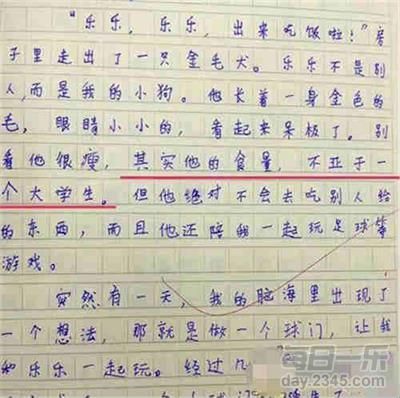 “乐乐，乐乐，出来吃饭啦！”房
子里走出了一只金毛犬。乐乐不是别
人，而是我的小狗。他长着一身金色的
毛，眼睛小小的，看起来呆极了。别
看他很瘦，其实他的食量，不亚于一
个大学生。但他绝对不会去吃别人给
的东西，而且他还陪我一起玩足球等
游戏。
突然有一天，我的脑海里出现了
一个想法，那就是做一个球门，让我
和乐乐一起玩。经过几
每日一乐
day.2345.com